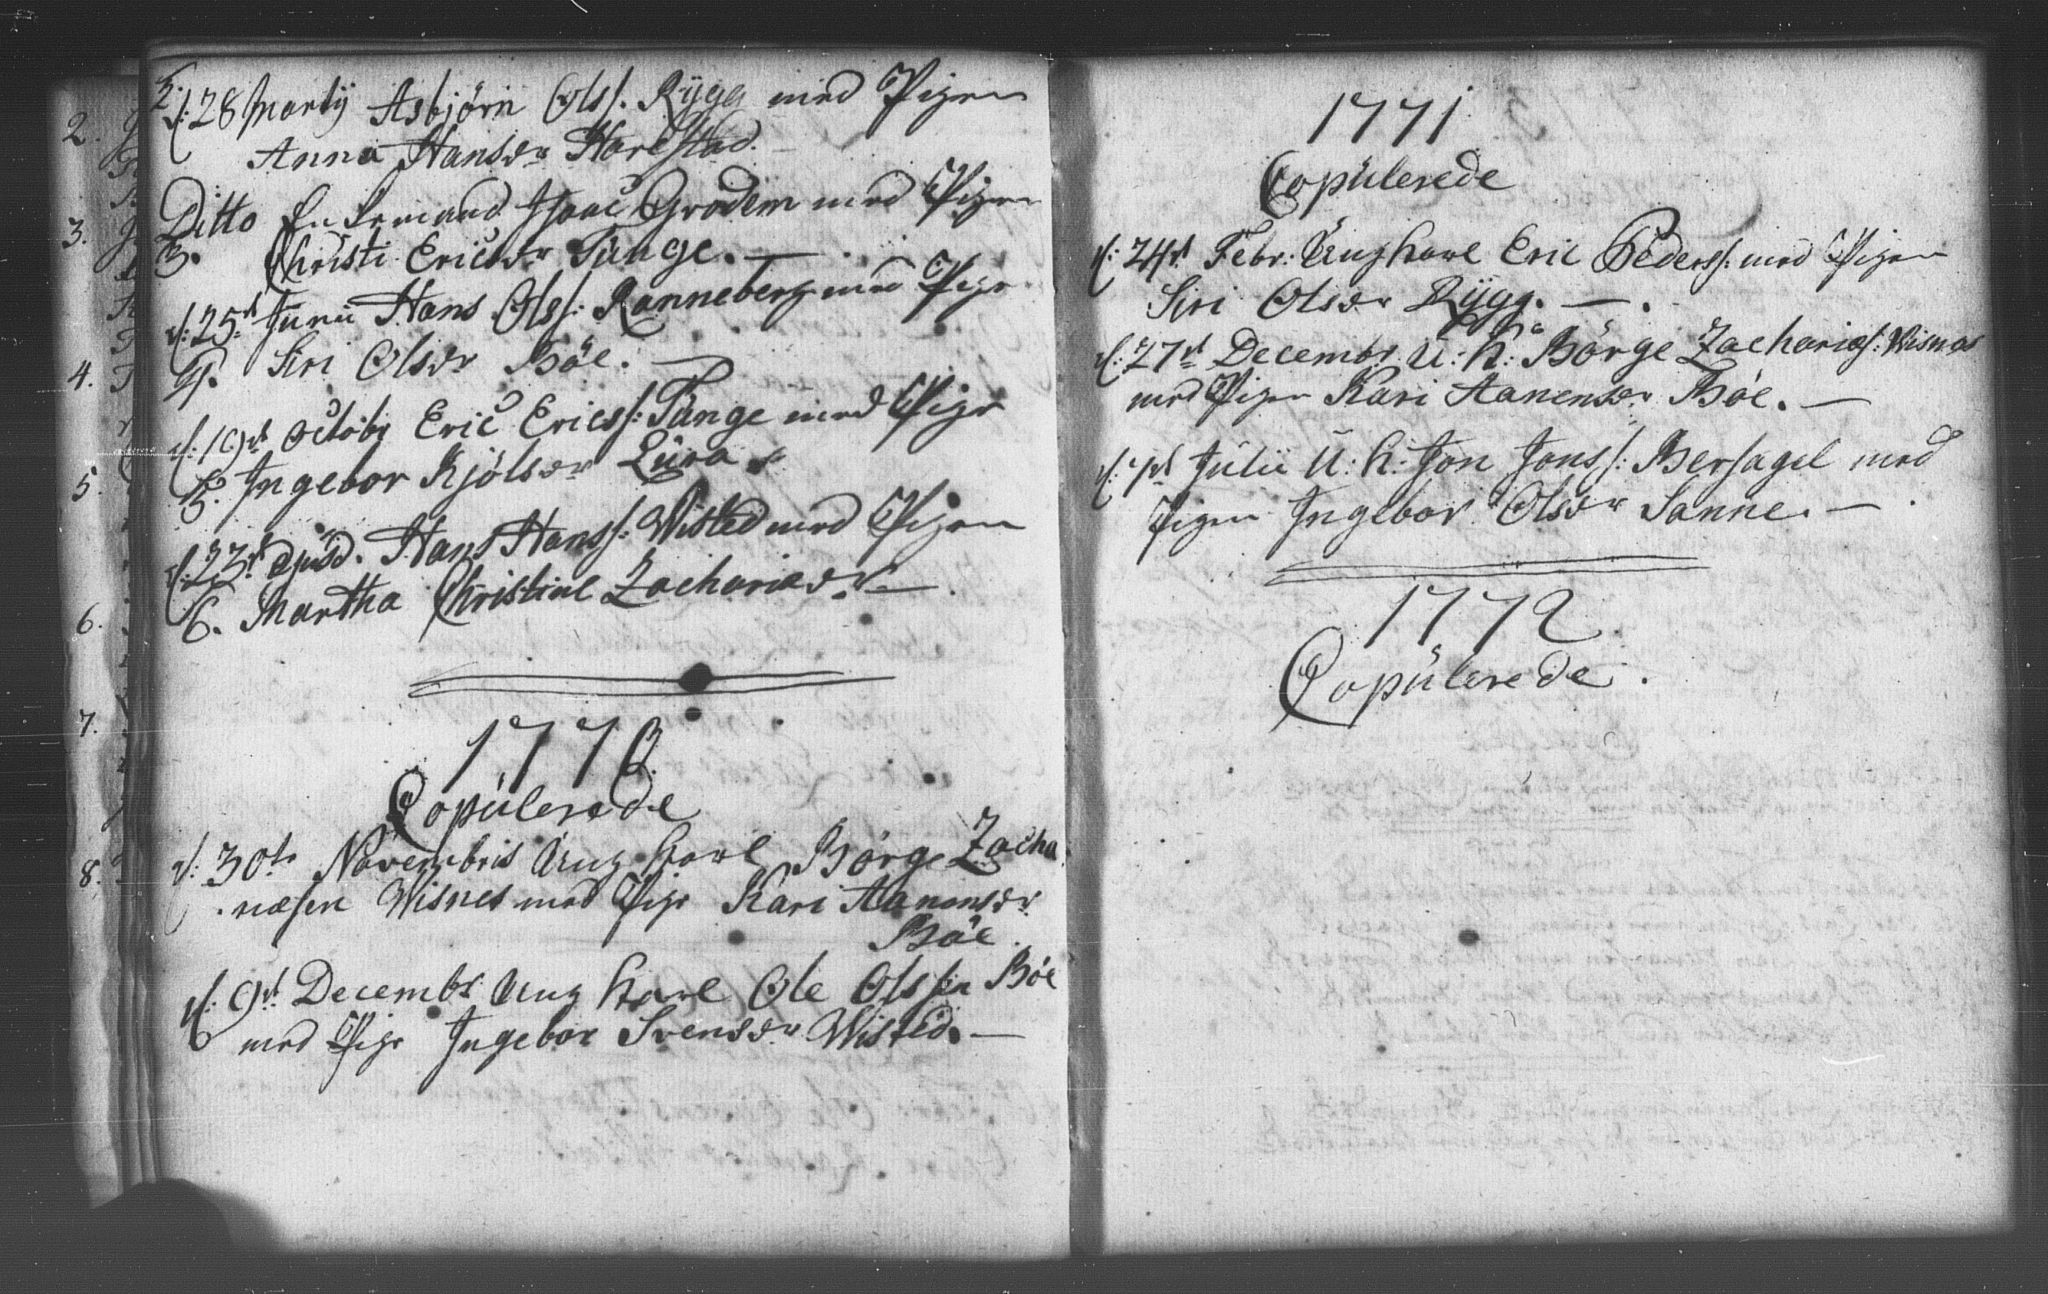 2.
d: 28 Martij Asbjørn Olss: Rÿgg med Pigen
Anna Hansdr Harestad.
Ditto Enkemand Isaac Grødem med Pigen
3. Christi Ericsdr Tunge. —
d: 25de Junii Hans Olss: Ranneberg med Pige
4. Siri Olsdr Bøe. —
d: 19de Octobr Eric Ericss: Tünge med Pige
5. Ingebor Kjølsdr Lüra
d: 23de ejusd. Hans Hanss: Wisted med Pigen
6. Martha Christine Zachariædr —
1770
Copülerede
d: 30te Novembris Ung Karl Børge Zacha
riæsen Wisnes med Pige Kari Aanensdr
Bøe
d: 9de Decembr Ung Karl Ole Olssen Bøe
med Pige Ingebor Svensdr Wisted. —
2.
3.
4.
5.
6.
7.
8.
1771
Copülerede
d: 24de Febr: Ung Karl Eric Pederss: med Pigen
Siri Olsdr Rÿgg. —
d: 27de Decembr U: K: Børge Zachariæs: Wisnes
med Pigen Kari Aanensdr Bøe. —
d: 7de Julii U: K: Jon Jonss: Bersagel med
Pigen Ingebor Olsdr Sanne. —
1772
Copülerede.